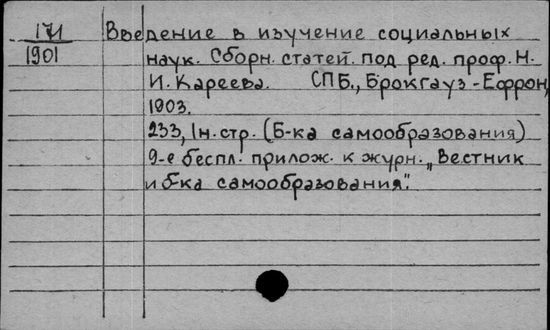 171 Введение в изучение социальных
1901 наук. Сборн. статей под ред. проф. Н.
И. Кареева. СПБ., Брокгауз-Ефрон,
1903.
233, 1н. стр. (Б-ка самообразования)
9-е беспл. прилож. к журн. „Вестник
и б-ка самообразования".